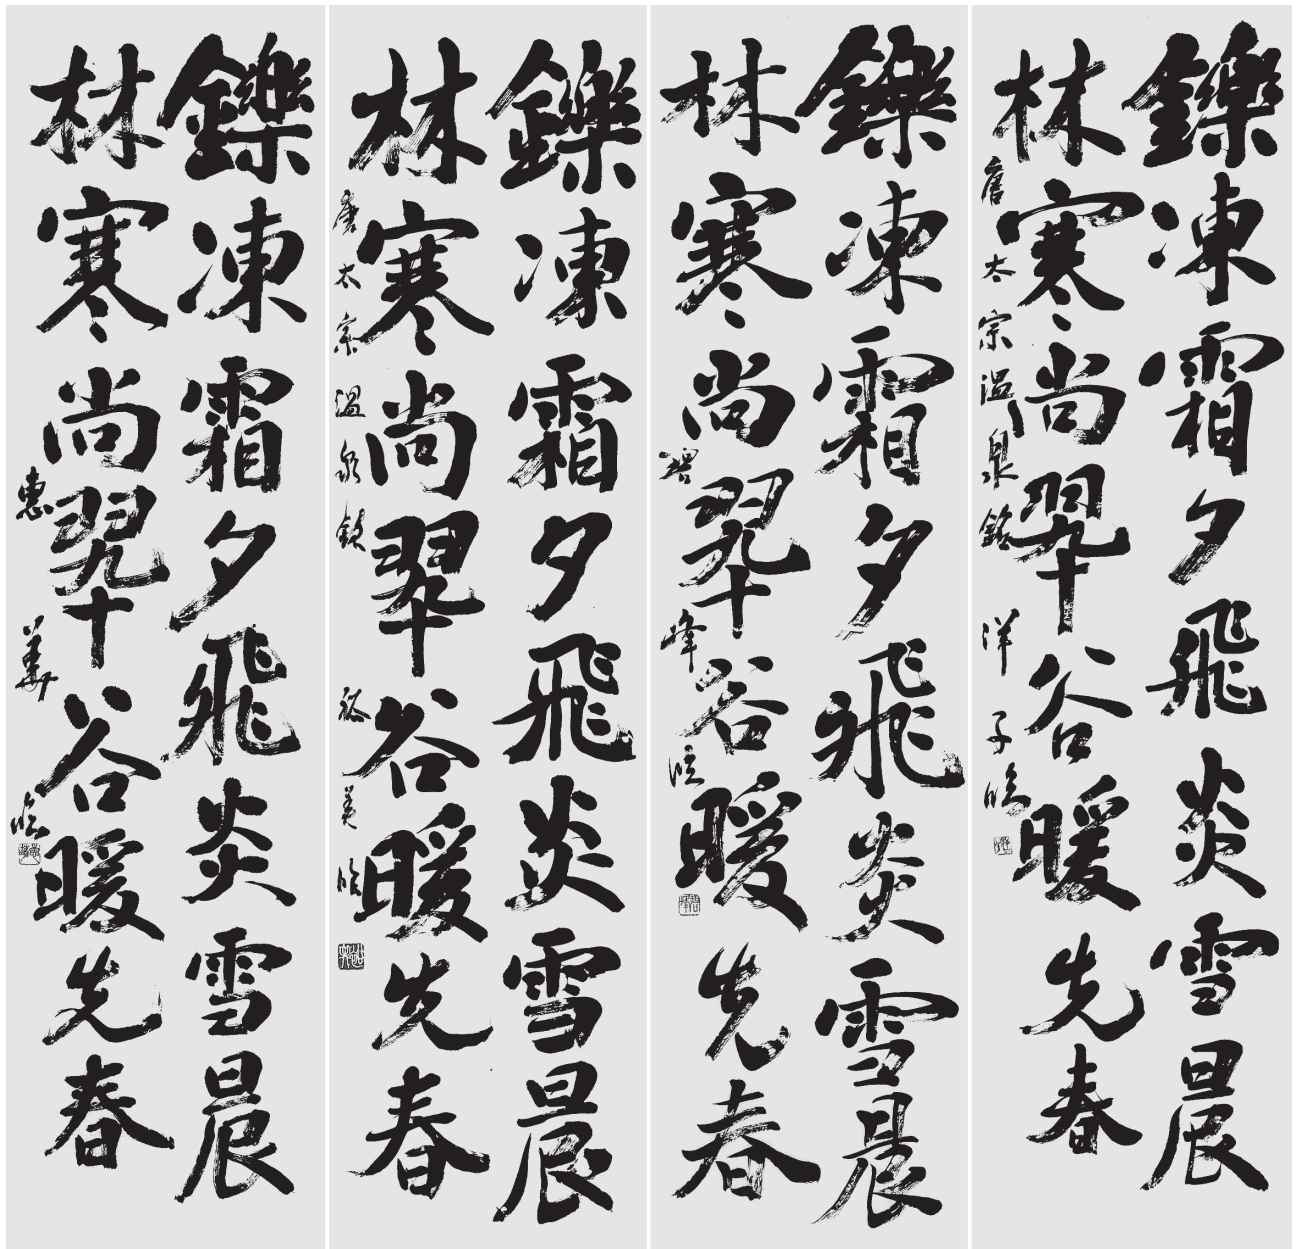 鑠凍霜夕飛炎雪晨
林寒尚翠谷暖先春
唐太宗温泉銘 洋子臨
鑠凍霜夕飛炎雪晨
林寒尚翠谷暖先春
峰臨
鑠凍霜夕飛炎雪晨
林寒尚翠谷暖先春
唐太宗 温泉銘 美臨
鑠凍霜夕飛炎雪晨
林寒尚翠谷暖先春
惠 臨